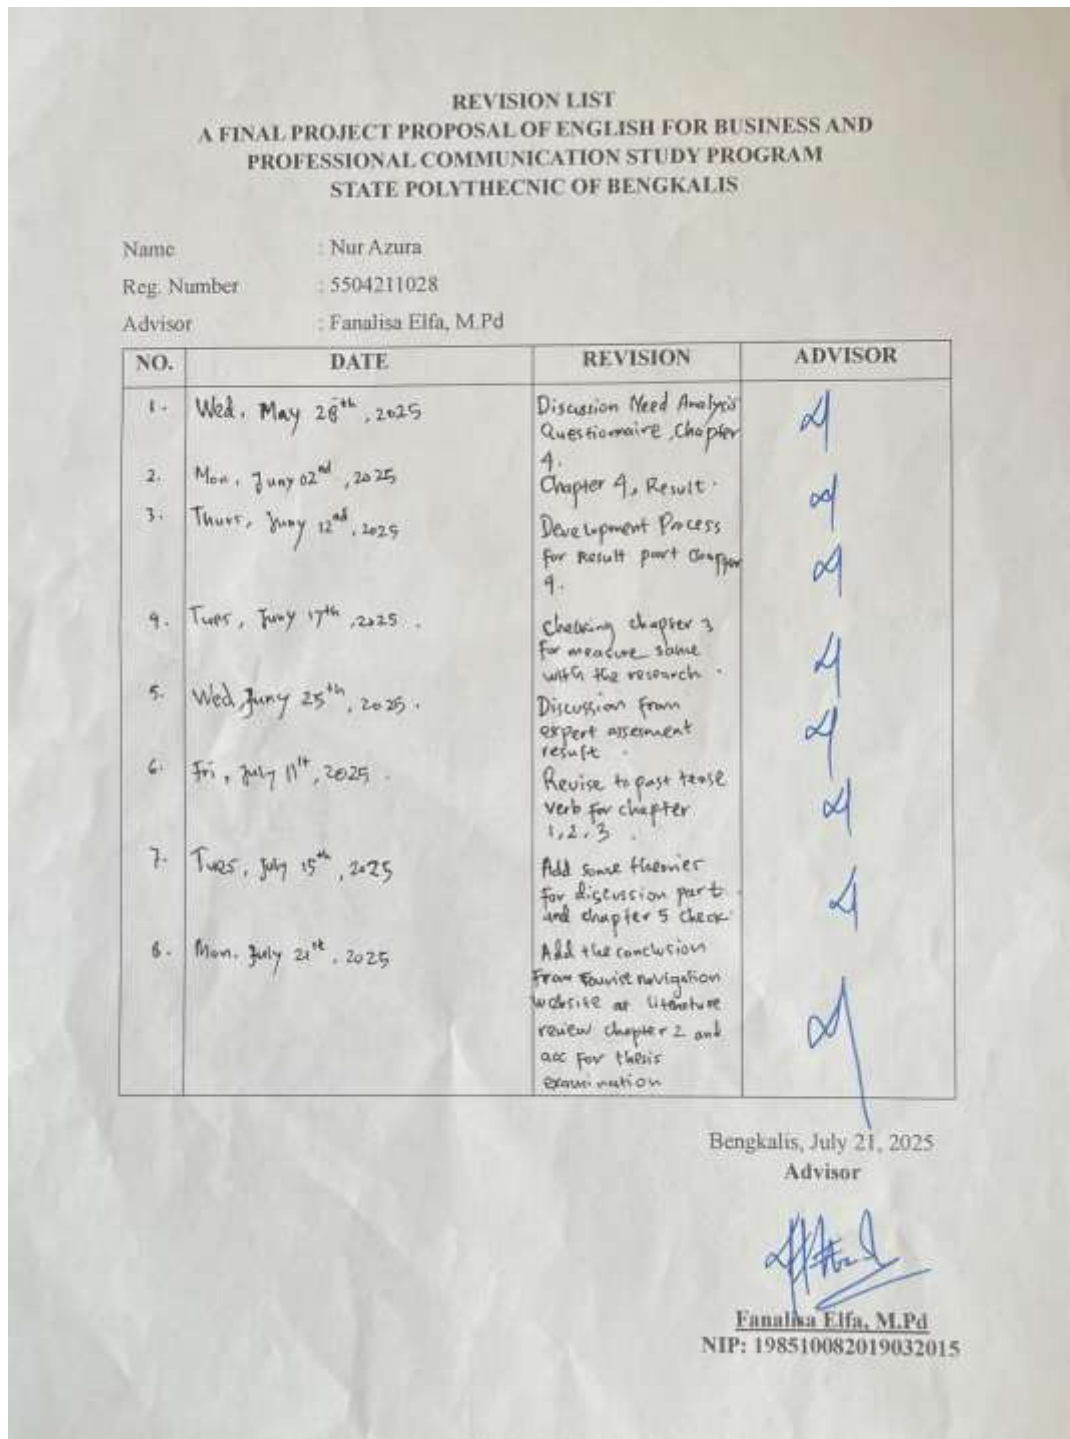 REVISION LIST
A FINAL PROJECT PROPOSAL OF ENGLISH FOR BUSINESS AND
PROFESSIONAL COMMUNICATION STUDY PROGRAM
STATE POLYTHECNIC OF BENGKALIS
Name : Nur Azura
Reg. Number : 5504211028
Advisor : Fanalisa Elfa, M.Pd
NO. DATE REVISION ADVISOR
1. Wed, May 28th, 2025 Discussion Need Analysis
Questionnaire, Chapter
4.
2. Mon, Juny 02nd, 2025 Chapter 4, Result.
3. Thurs, Juny 12nd, 2025 Development Process
for Result part Chapter
4.
4. Tues, Juny 17th, 2025. Checking chapter 3
for measure same
with the research.
5. Wed, Juny 25th, 2025. Discussion from
expert assesment
result.
6. Fri, July 11th, 2025. Revise to past tense
verb for chapter
1, 2, 3.
7. Tues, July 15th, 2025 Add some theories
for discussion part
and chapter 5 check.
8. Mon, July 21st, 2025 Add the conclusion
from tourist navigation
website at literature
review chapter 2 and
acc for thesis
examination
Bengkalis, July 21, 2025
Advisor
Fanalisa Elfa, M.Pd
NIP: 198510082019032015